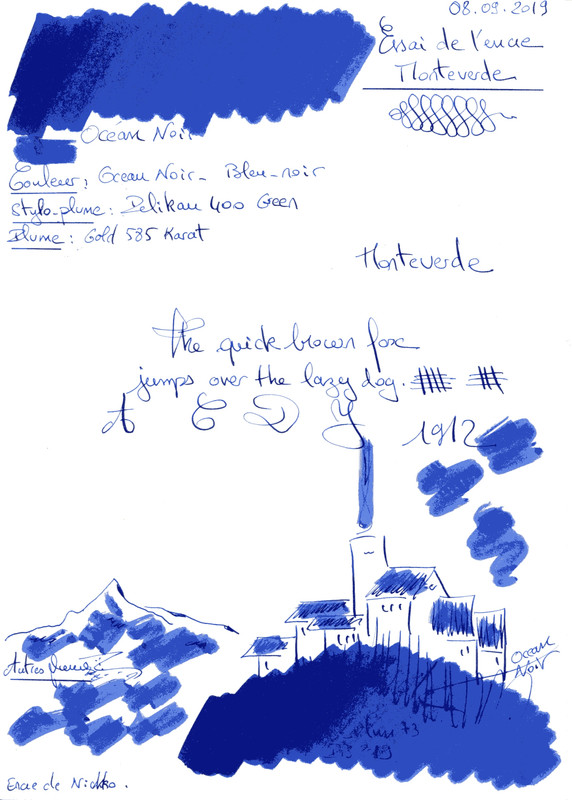 08.09.2019
Essai de l'encre
Monteverde
Océan Noir
Couleur : Ocean Noir - Bleu-noir
Stylo-plume : Pelikan 400 Green
Plume : Gold 585 Karat
Monteverde
The quick brown fox
jumps over the lazy dog.
A C D Y
1912
Ocean
Noir
Autres
Encre de Nickko.